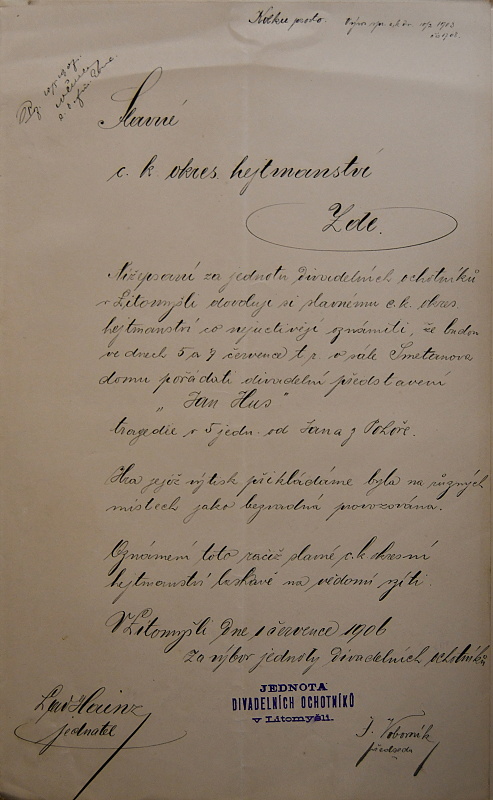 Slavné
c. k. okres. hejtmanství
Zde.
Nížepsaní za jednotu divadelních ochotníků
v Litomyšli dovoluje si slavnému c. k. okres.
hejtmanství co nejuctivěji oznámiti, že budou
ve dnech 5 a 7 července t. r. v sále Smetanova
domu pořádati divadelní představení
„Jan Hus"
tragedie v 5 jedn. od Jana z Pohoře.
Hra jejíž výtisk přikládáme byla na různých
místech jako bezvadná provozována.
Oznámení toto račiž slavné c. k. okresní
hejtmanství laskavě na vědomí vzíti.
V Litomyšli dne 1 července 1906
Za výbor jednoty divadelních ochotníků
JEDNOTA
DIVADELNÍCH OCHOTNÍKŮ
v Litomyšli.
Hainz
jednatel
J. Voborník
předseda